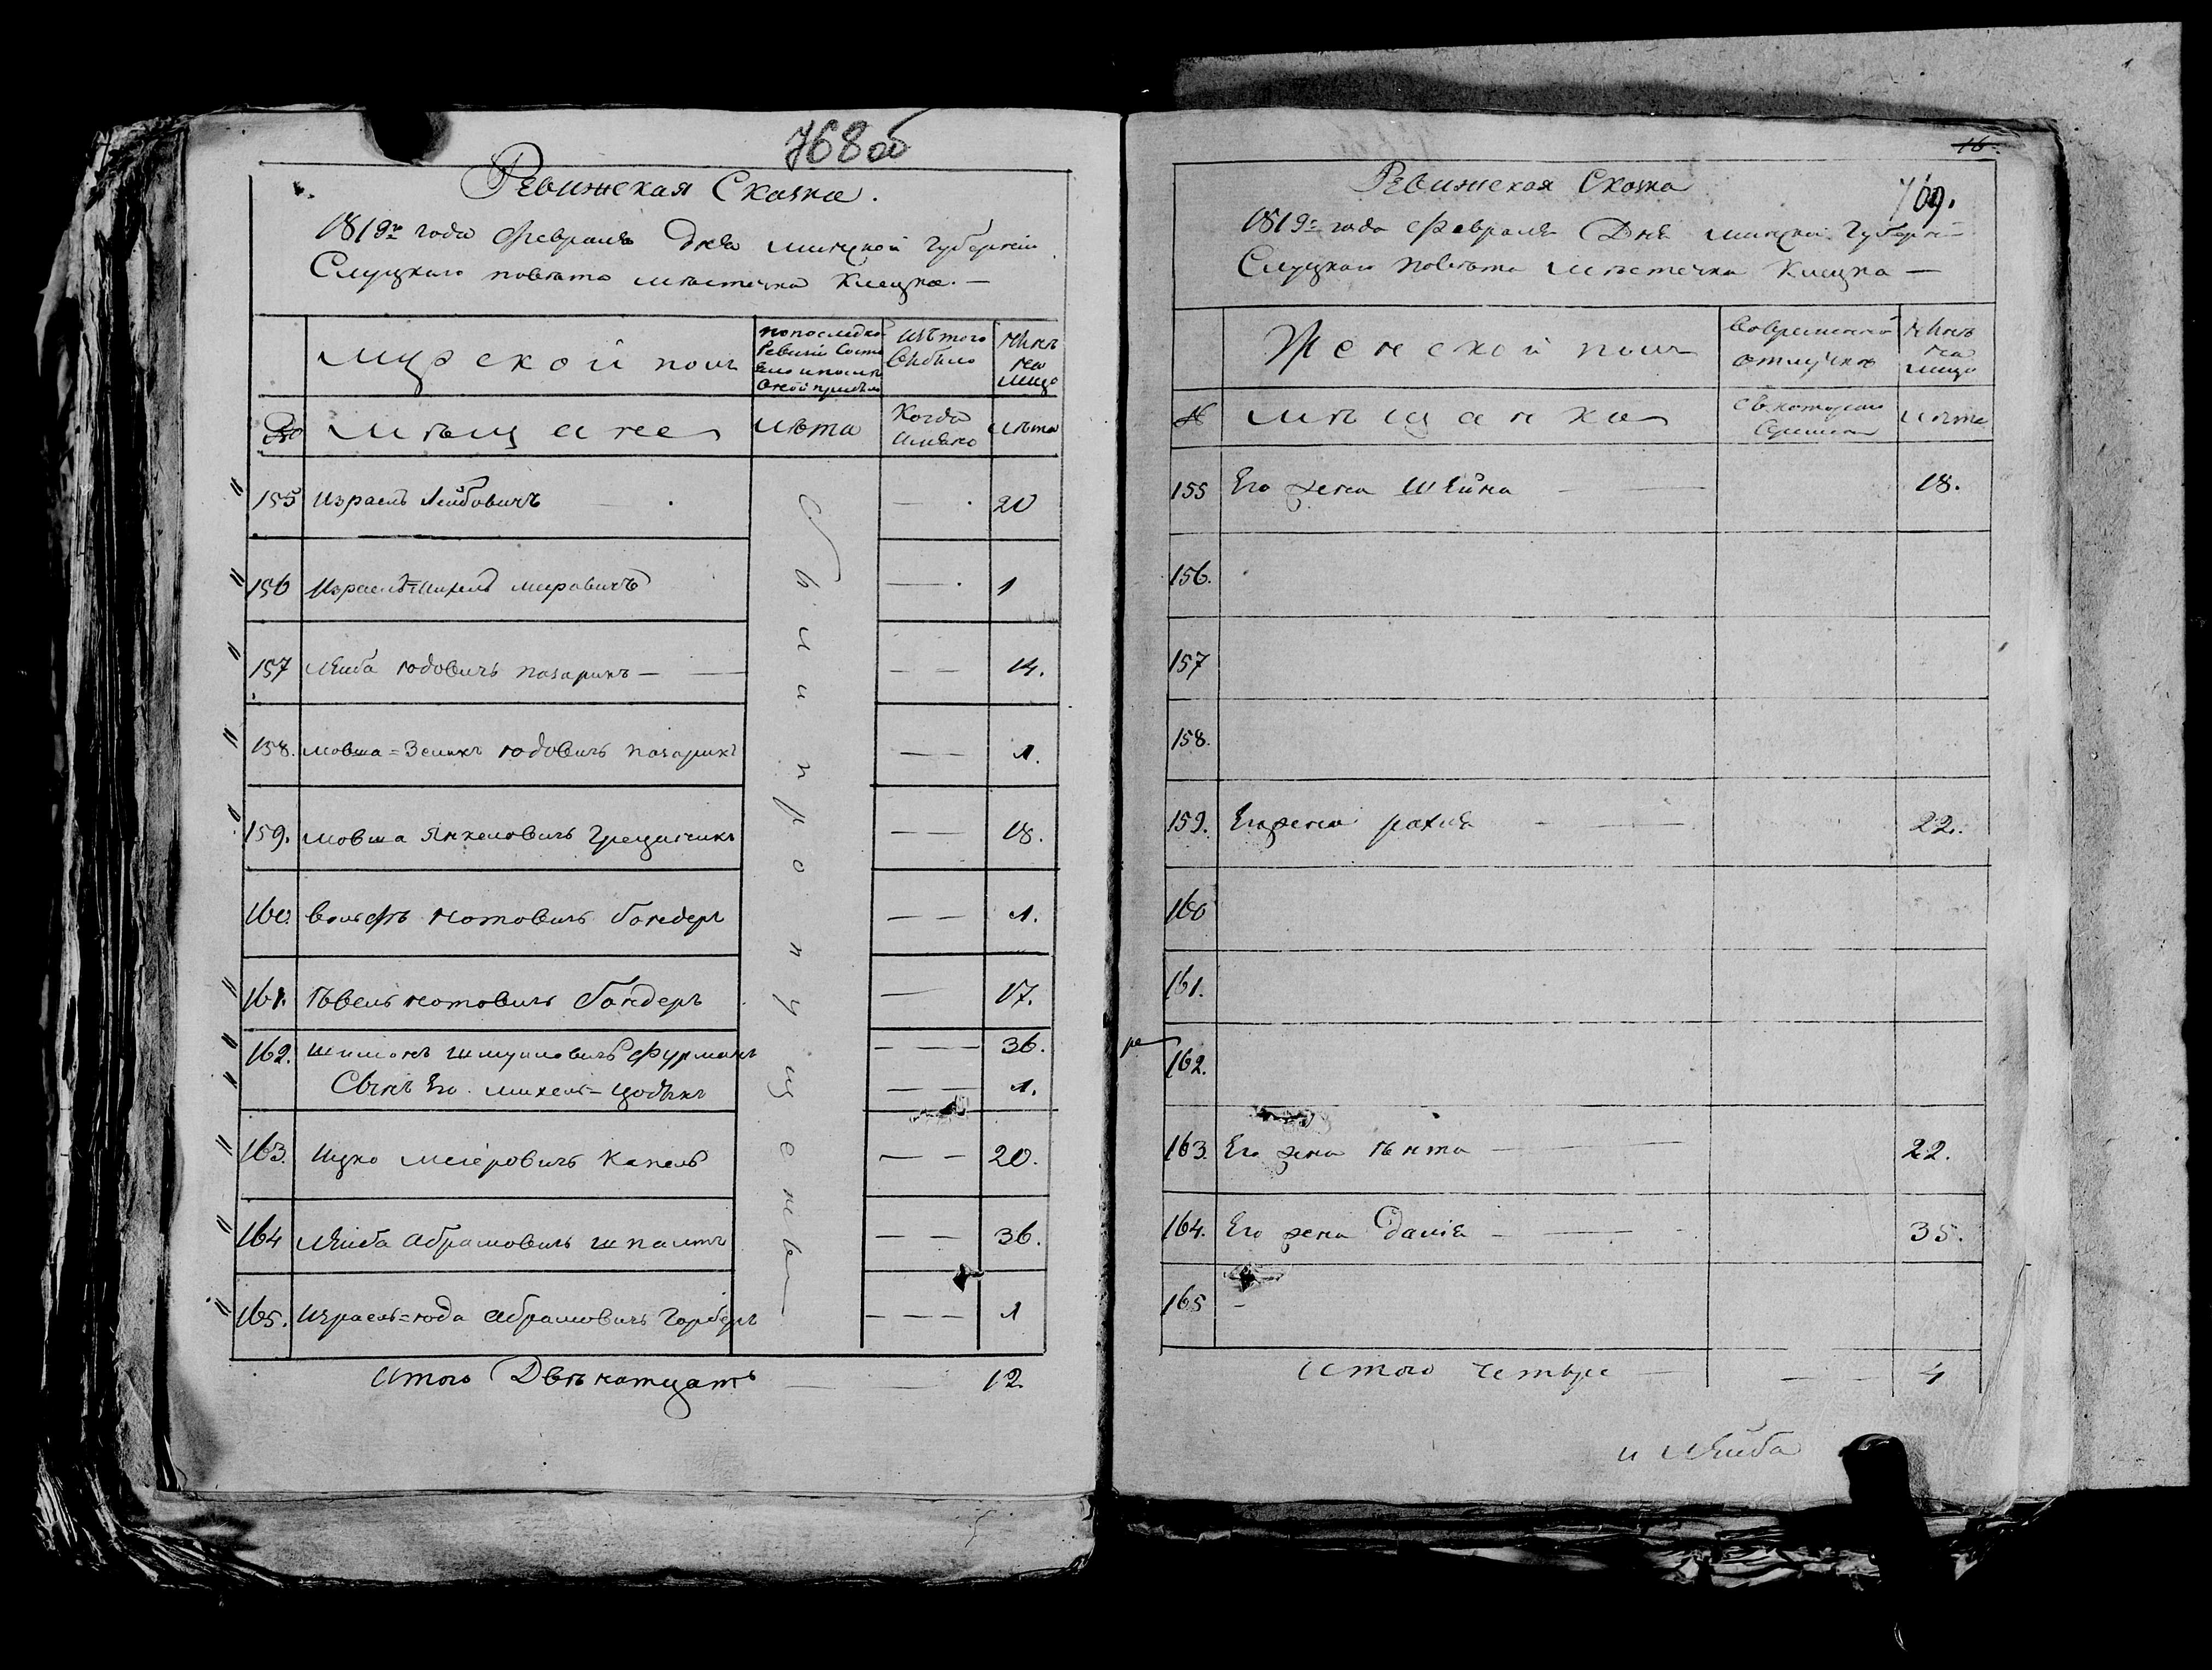 768 об
Ревижская Сказка.
1819го года Февраля Дня минской губернии
Слуцкаго повѣта мѣстечка Клецка. —
мужской полъ
по последней
Ревизии Состо
яло и после
оной прибыло
Изъ того
выбыло
Нынѣ
на
лицо
№
мѣщане
Лѣта
Когда
имянно
Лѣта
155 Израель Лейбовичъ — 20
156 Израель=Михель мировичъ — 1
157 Лейба Юдовичъ пазарикъ — — — 14.
158. мовша=Зеликъ Юдовичъ пазарикъ — — 1.
159. мовша Янкелевичъ Грецишникъ — — 18.
160. вольфъ нотовичъ бондеръ — — 1.
161. Гевель нотовичъ бондеръ — 17.
162. шимонъ шмуиловичъ Фурманъ — — 36.
Сынъ Его. михель=цодыкъ — — 1.
163. Ицко меіеровичъ Капель — — 20.
164 Лейба Абрамовичъ шпалтъ — — 36.
165. Израель=Юда Абрамовичъ Гарберъ — — — 1
были пропущены
Итого Двѣнатцать — — 12.
16.
709.
Ревижская Сказка
1819го года Февраля Дня минской Губернии
Слуцкаго повѣта мѣстечка Клецка —
Женской полъ
Во временной
отлучкѣ
Нынѣ
на
лицо
№
мѣщанки
съ котораго
времени
Лѣта
155 Его жена Шейна — 18.
156.
157
158.
159. Его жена рахля — 22.
160
161.
162.
163. Его жена Гента — 22.
164. Его жена Даміа — 35.
165 —
Итого четыре — — — 4
и Лейба